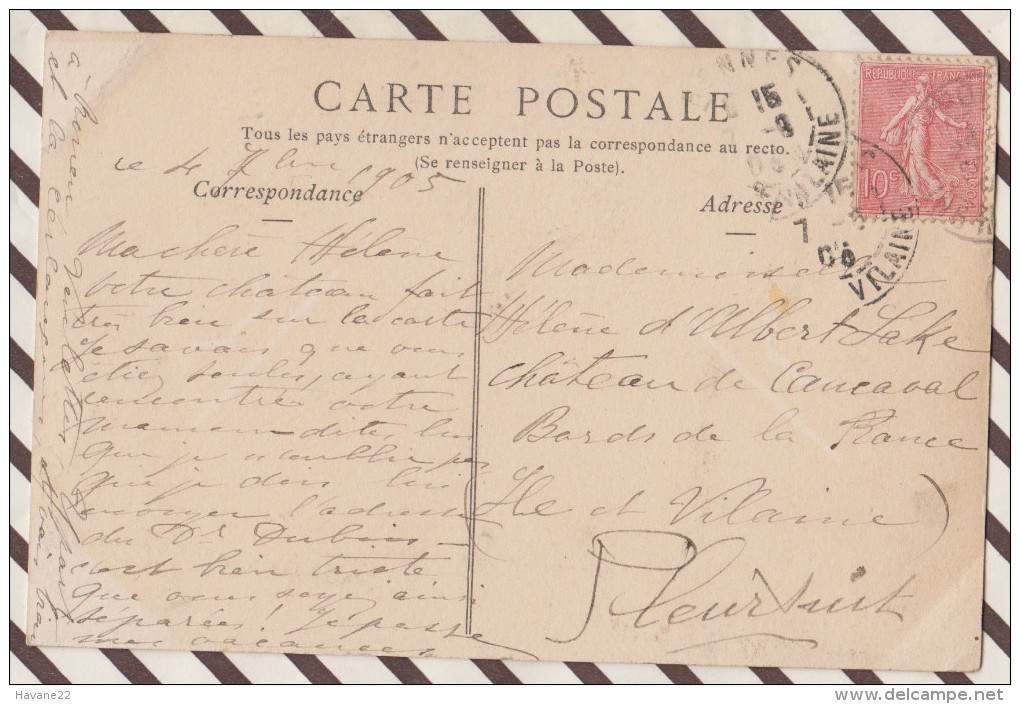 CARTE POSTALE
Tous les pays étrangers n'acceptent pas la correspondance au recto.
(Se renseigner à la Poste).
ce 4 7bre 1905
Correspondance
Adresse
RÉPUBLIQUE FRANÇAISE
10c
VILAINE
VILAINE
Ma chère Hélène
votre château fait
très bien sur la carte
Je savais que vous
étiez seules, ayant
rencontré votre
maman dites lui
que je n'oublie pas
que je dois lui
envoyer l'adresse
du Dr Dubois
c'est bien triste
que vous soyez ainsi
séparées! Je passe
mes vacances
à Rouen
et la
Mademoiselle
Hélène d'Albert Lake
château de Cancaval
Bords de la Rance
Ile et Vilaine
Pleurtuit
Havane22
www.delcampe.net